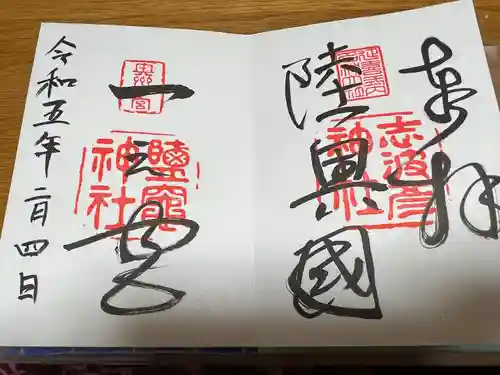 奉拝
陸奥國
志波彦
神社
一之宮
鹽竈
神社
奥州
一宮
令和五年二月四日